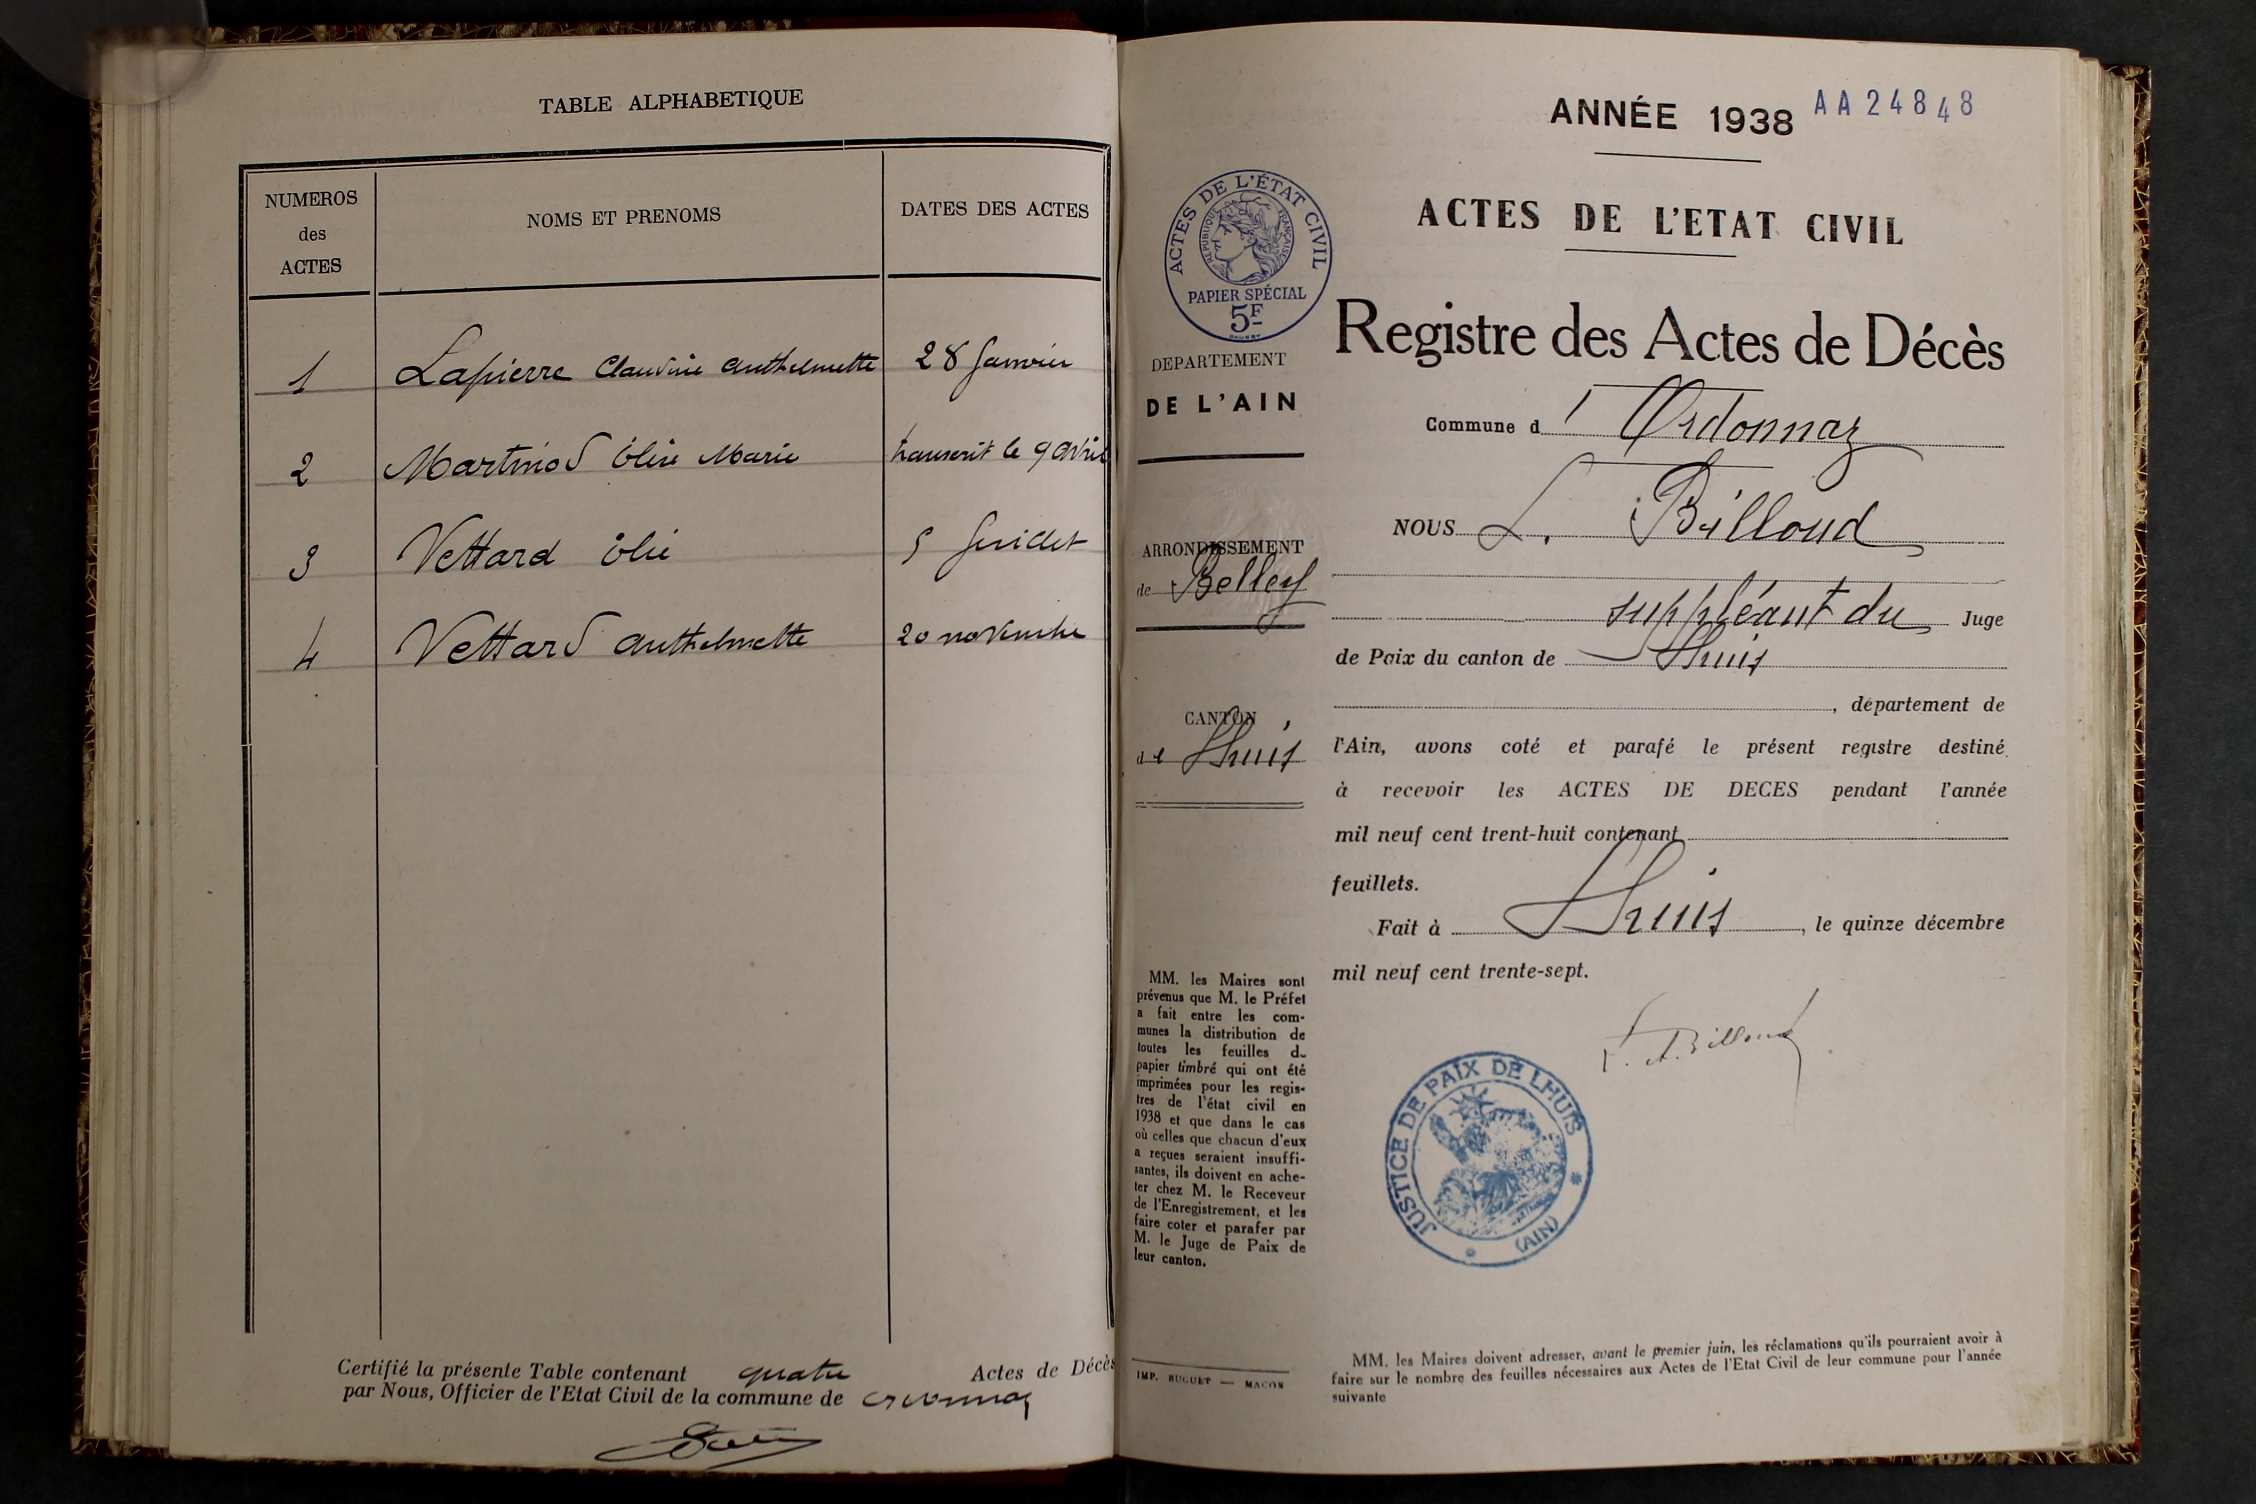 TABLE ALPHABETIQUE
NUMEROS
des
ACTES
NOMS ET PRENOMS
DATES DES ACTES
1 Lapierre Claudine Anthelmette 28 Janvier
2 Martinod Élise Marie transcrit le 9 avril
3 Vettard Élie 5 Juillet
4 Vettard Anthelmette 20 novembre
Certifié la présente Table contenant quatre Actes de Décès
par Nous, Officier de l'Etat Civil de la commune de Ordonnaz
ANNÉE 1938 AA24848
ACTES DE L'ÉTAT CIVIL
RÉPUBLIQUE FRANÇAISE
PAPIER SPÉCIAL
5F
DEPARTEMENT
DE L'AIN
ARRONDISSEMENT
de Belley
CANTON
de Lhuis
MM. les Maires sont
prévenus que M. le Préfet
a fait entre les com-
munes la distribution de
toutes les feuilles d
papier timbré qui ont été
imprimées pour les regis-
tres de l'état civil en
1938 et que dans le cas
où celles que chacun d'eux
a reçues seraient insuffi-
santes, ils doivent en ache-
ter chez M. le Receveur
de l'Enregistrement, et les
faire coter et parafer par
M. le Juge de Paix de
leur canton.
IMP. BUGUET — MACON
ACTES DE L'ETAT CIVIL
Registre des Actes de Décès
Commune d'Ordonnaz
NOUS L. Billoud
suppléant du Juge
de Paix du canton de Lhuis
, département de
l'Ain, avons coté et parafé le présent registre destiné
à recevoir les ACTES DE DECES pendant l'année
mil neuf cent trent-huit contenant
feuillets.
Fait à Lhuis, le quinze décembre
mil neuf cent trente-sept.
Billoud
JUSTICE DE PAIX DE LHUIS
(AIN)
MM. les Maires doivent adresser, avant le premier juin, les réclamations qu'ils pourraient avoir à
faire sur le nombre des feuilles nécessaires aux Actes de l'Etat Civil de leur commune pour l'année
suivante